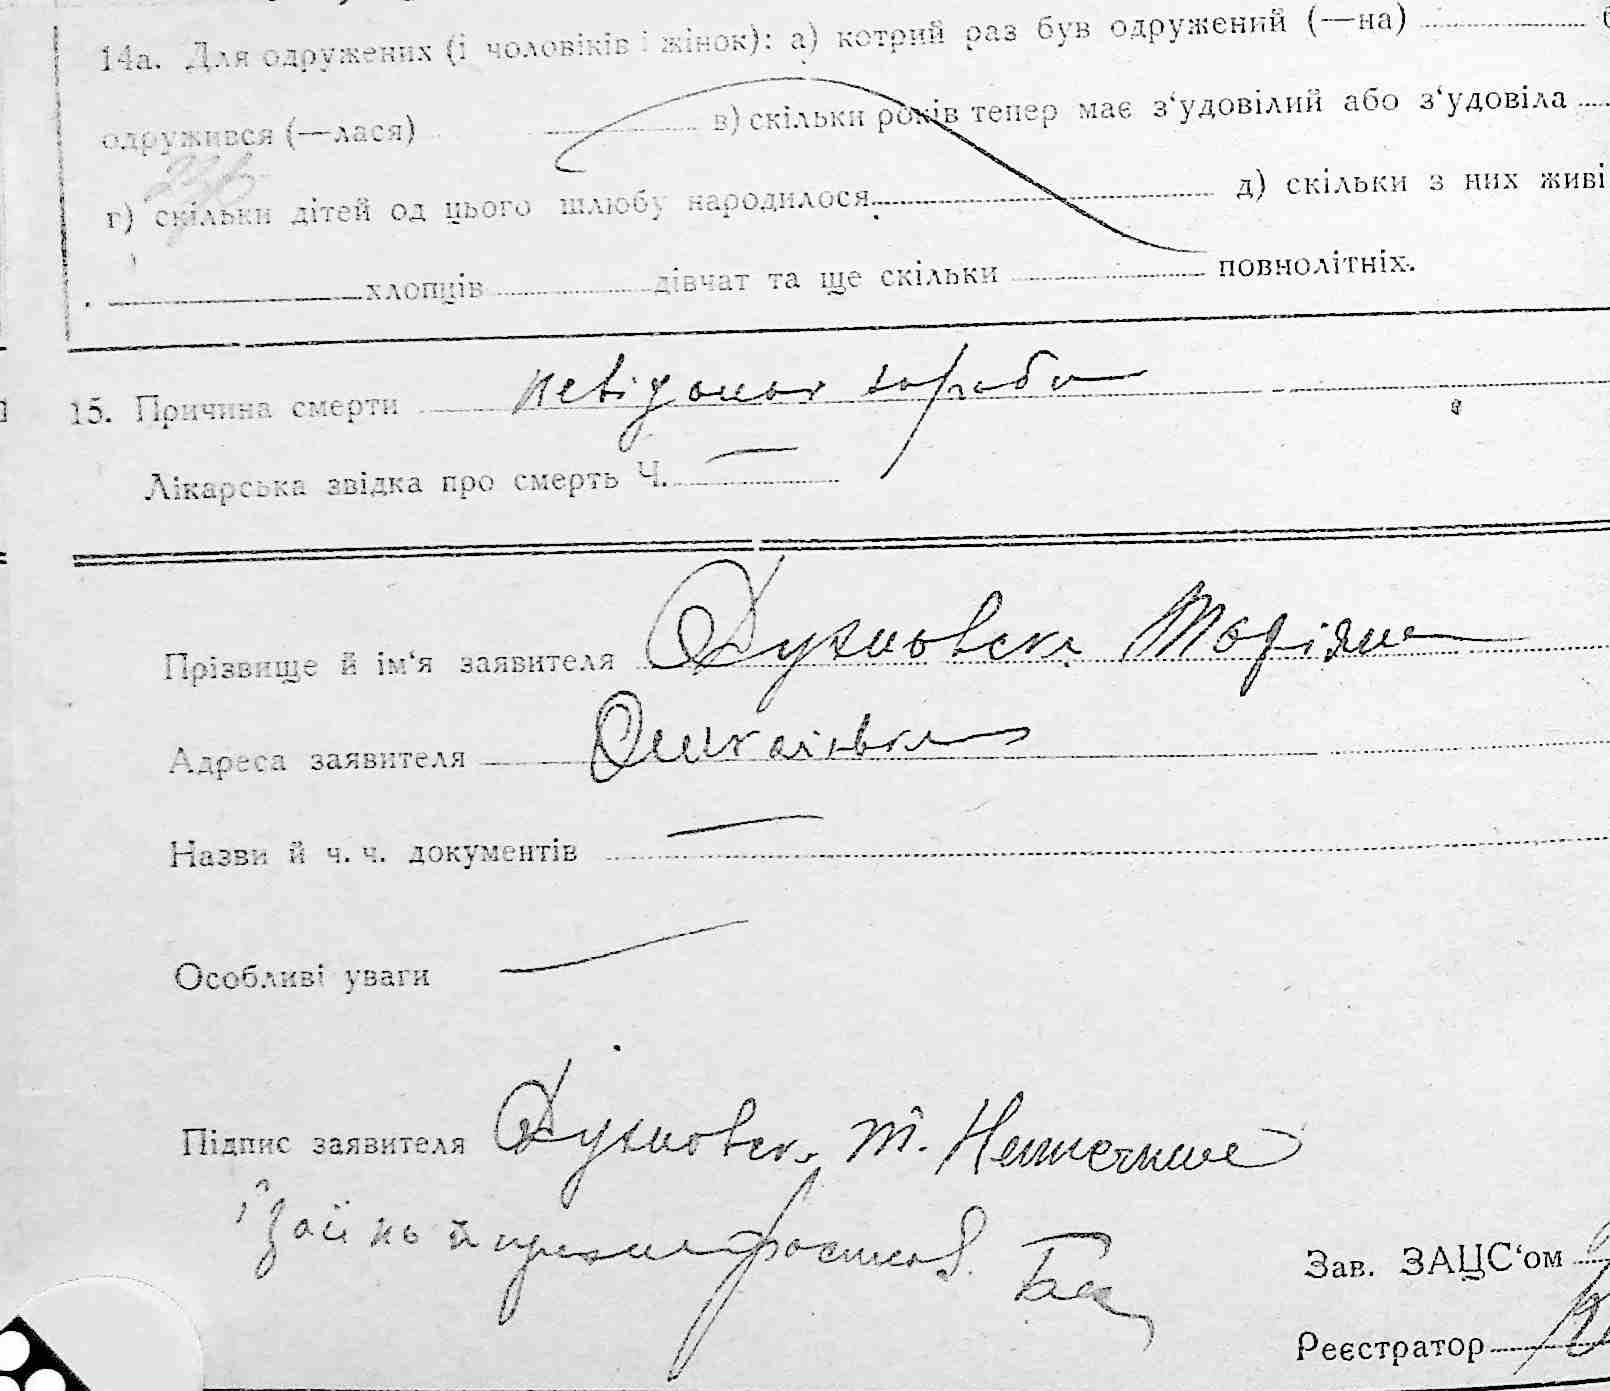 14а. Для одружених (і чоловіків і жінок): а) котрий раз був одружений (—на)
одружився (—лася) в) скільки років тепер має з‘удовілий або з‘удовіла
г) скільки дітей од цього шлюбу народилося д) скільки з них живі
хлопців дівчат та ще скільки повнолітніх.
15. Причина смерти невідомая хороба
Лікарська звідка про смерть Ч. —
Прізвище й ім‘я заявителя Духновск. Моріяна
Адреса заявителя
Назви й ч. ч. документів —
Особливі уваги —
Підпис заявителя Духновск. М. Неписчмена
Зав. ЗАЦС‘ом
Реєстратор